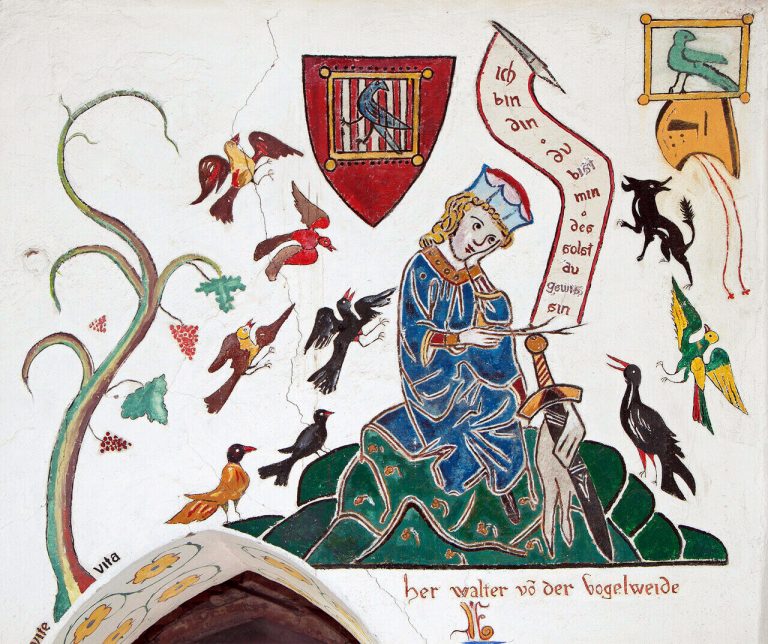 ich
bin
din ·
du
bist
min
·
des
solst
du
gewiss
sin
vita
her walter vō der Vogelweide